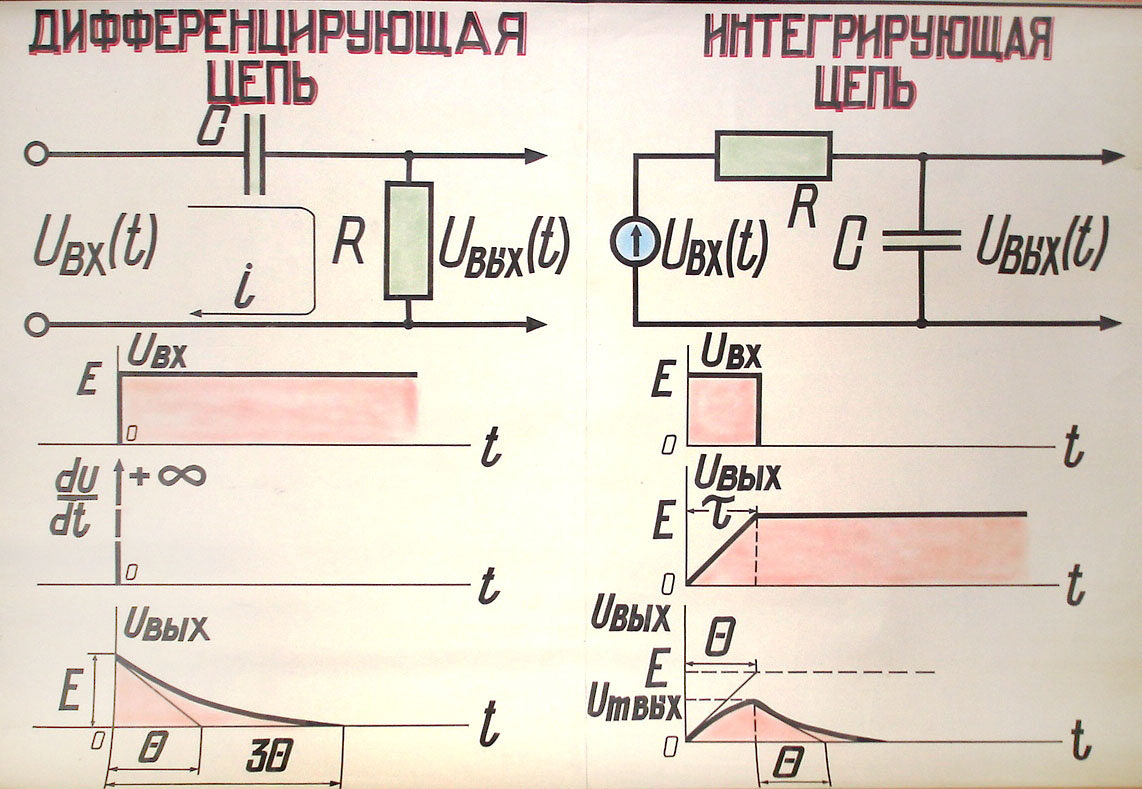 ДИФФЕРЕНЦИРУЮЩАЯ
ЦЕПЬ
C
Uвх(t)
i
R
Uвых(t)
E
Uвх
0
t
du
dt
+ ∞
0
t
Uвых
E
0
t
θ
3θ
ИНТЕГРИРУЮЩАЯ
ЦЕПЬ
R
Uвх(t)
C
Uвых(t)
Uвх
E
0
t
Uвых
τ
E
0
t
Uвых
θ
E
Umвых
0
t
θ